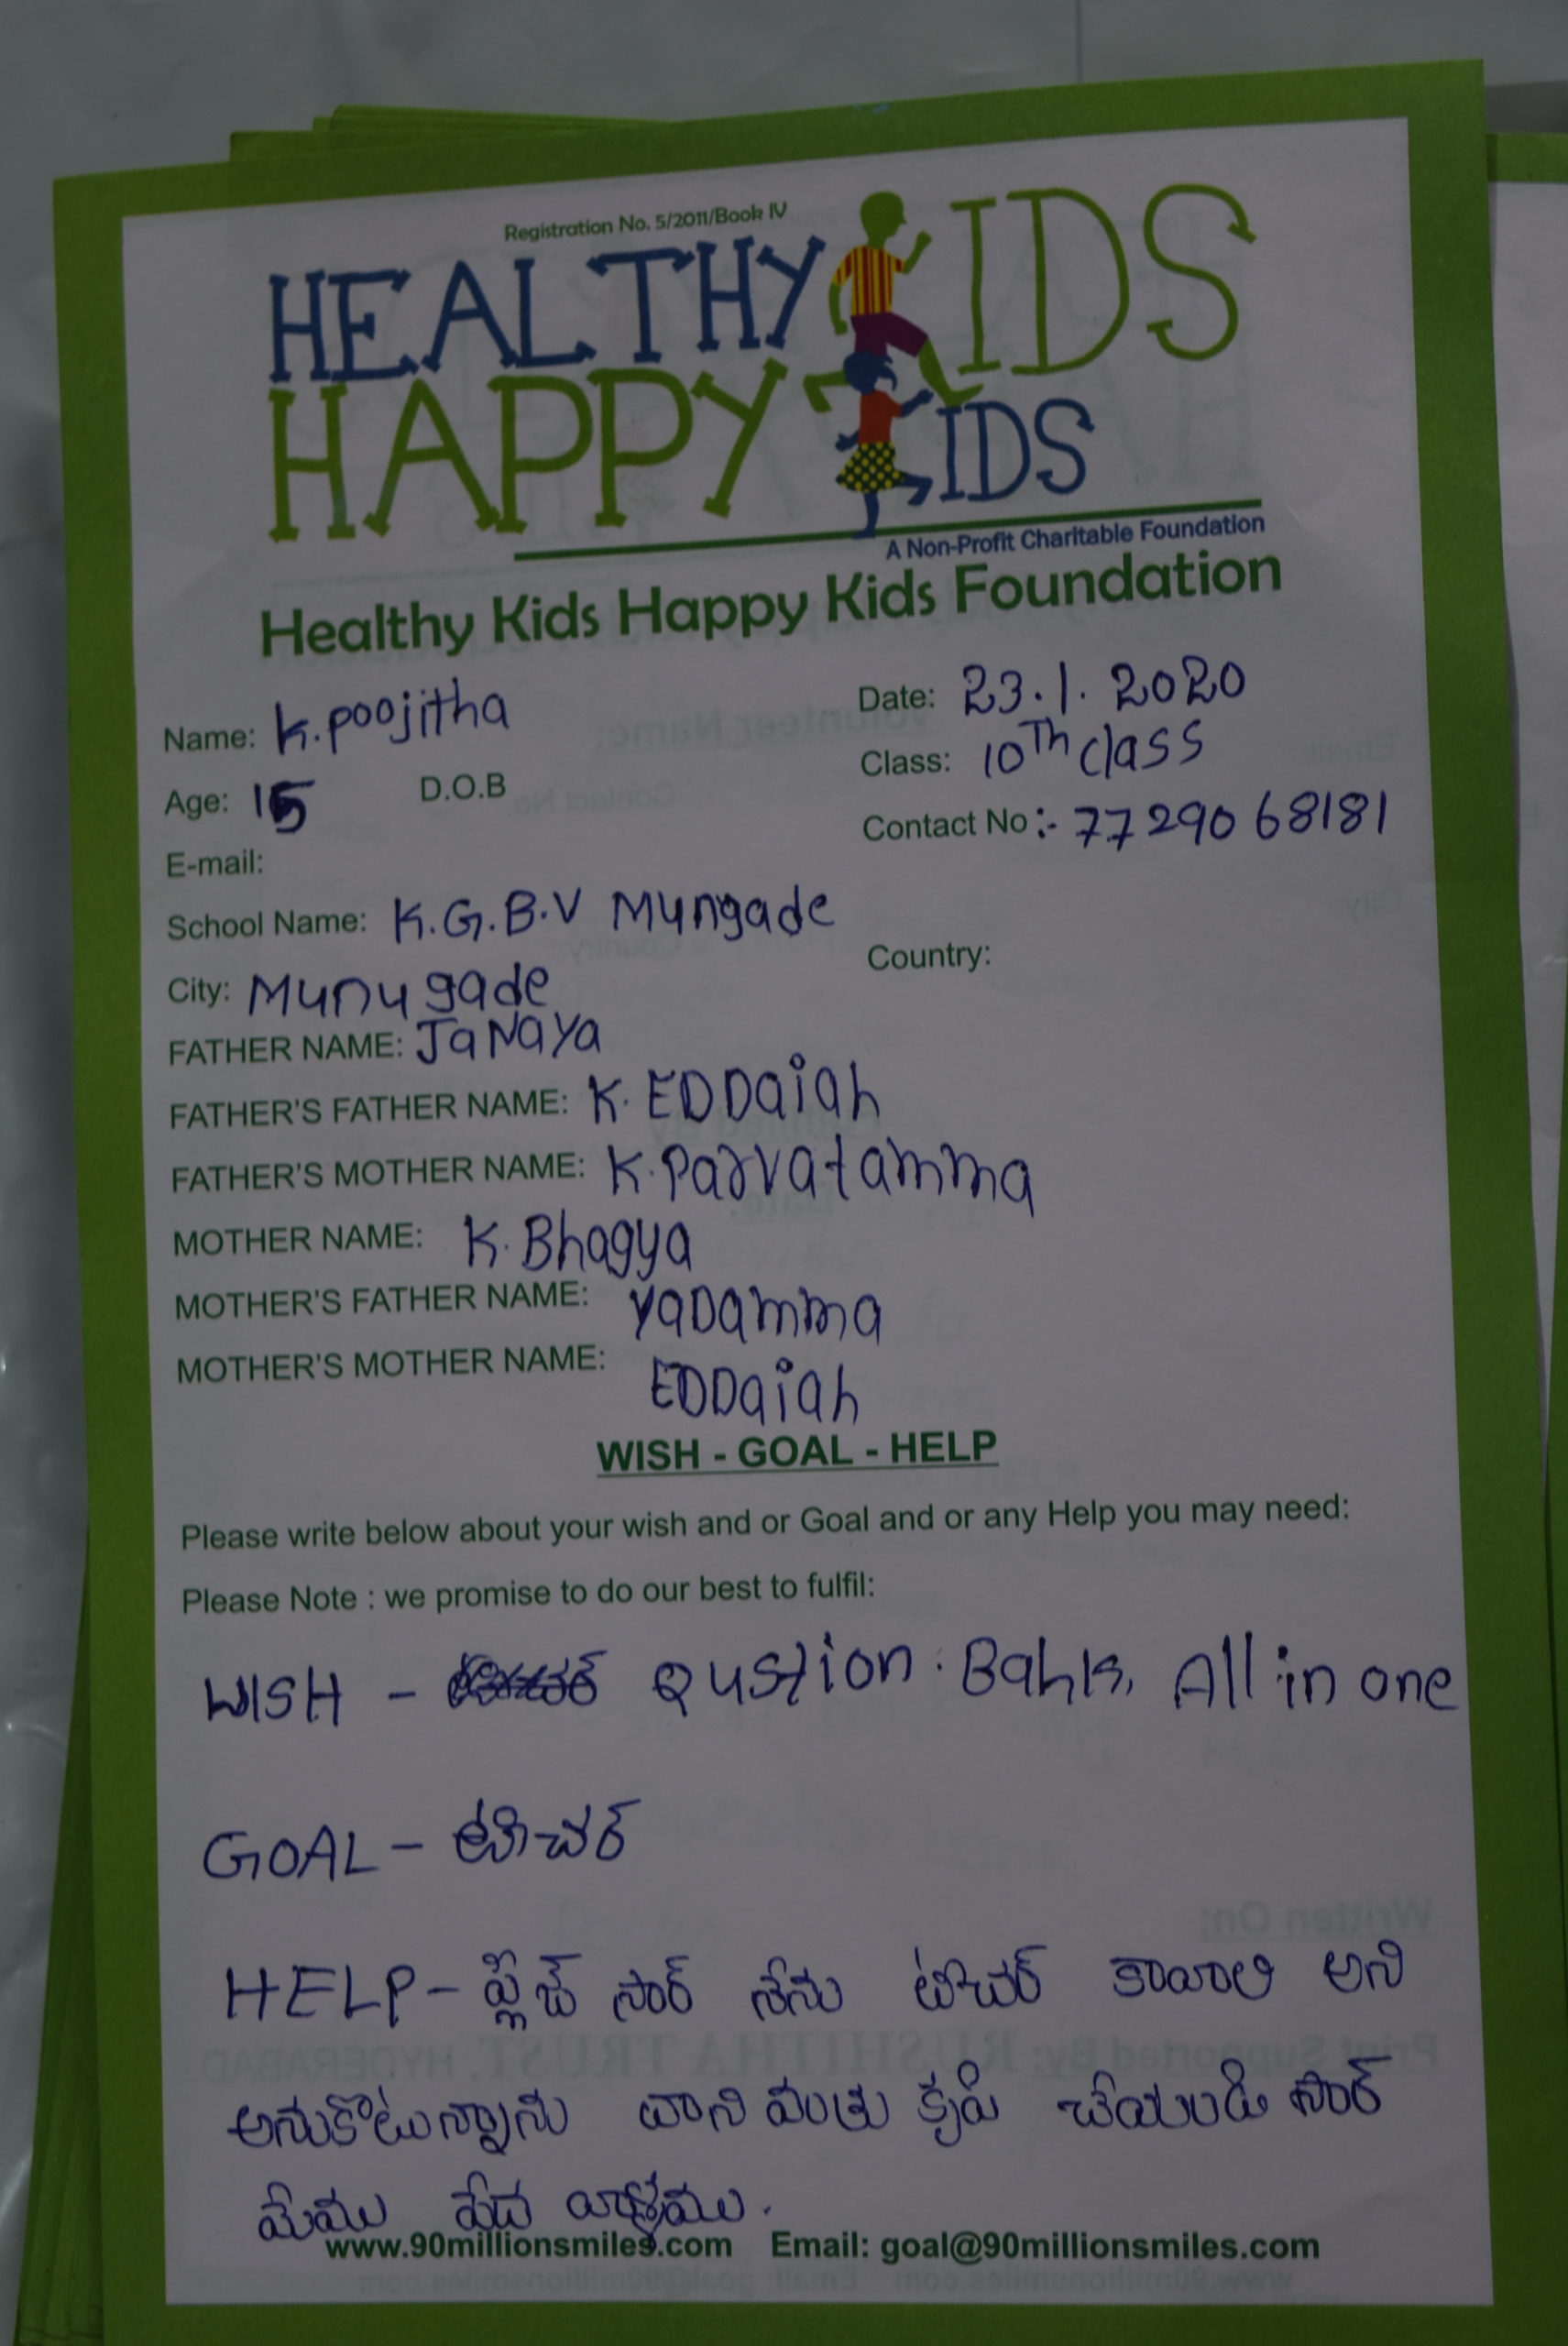 Registration No. 5/2011/Book IV
HEALTHY KIDS
HAPPY KIDS
A Non-Profit Charitable Foundation
Healthy Kids Happy Kids Foundation
Name: K.poojitha Date: 23.1.2020
Age: 15 D.O.B Class: 10Th class
E-mail: Contact No:- 77290 68181
School Name: K.G.B.V Mungade
City: Munugade Country:
FATHER NAME: JaNaya
FATHER'S FATHER NAME: K. EDDaiah
FATHER'S MOTHER NAME: K.Parvatamma
MOTHER NAME: K.Bhagya
MOTHER'S FATHER NAME: YaDamma
MOTHER'S MOTHER NAME: EDDaiah
WISH - GOAL - HELP
Please write below about your wish and or Goal and or any Help you may need:
Please Note : we promise to do our best to fulfil:
WISH - Qustion. Bahk, All in one
GOAL - టీచర్
HELP - ప్లీజ్ సార్ నేను టీచర్ కావాలి అని
అనుకొటున్నాను చేయండి సార్
మేము పేద
www.90millionsmiles.com Email: goal@90millionsmiles.com